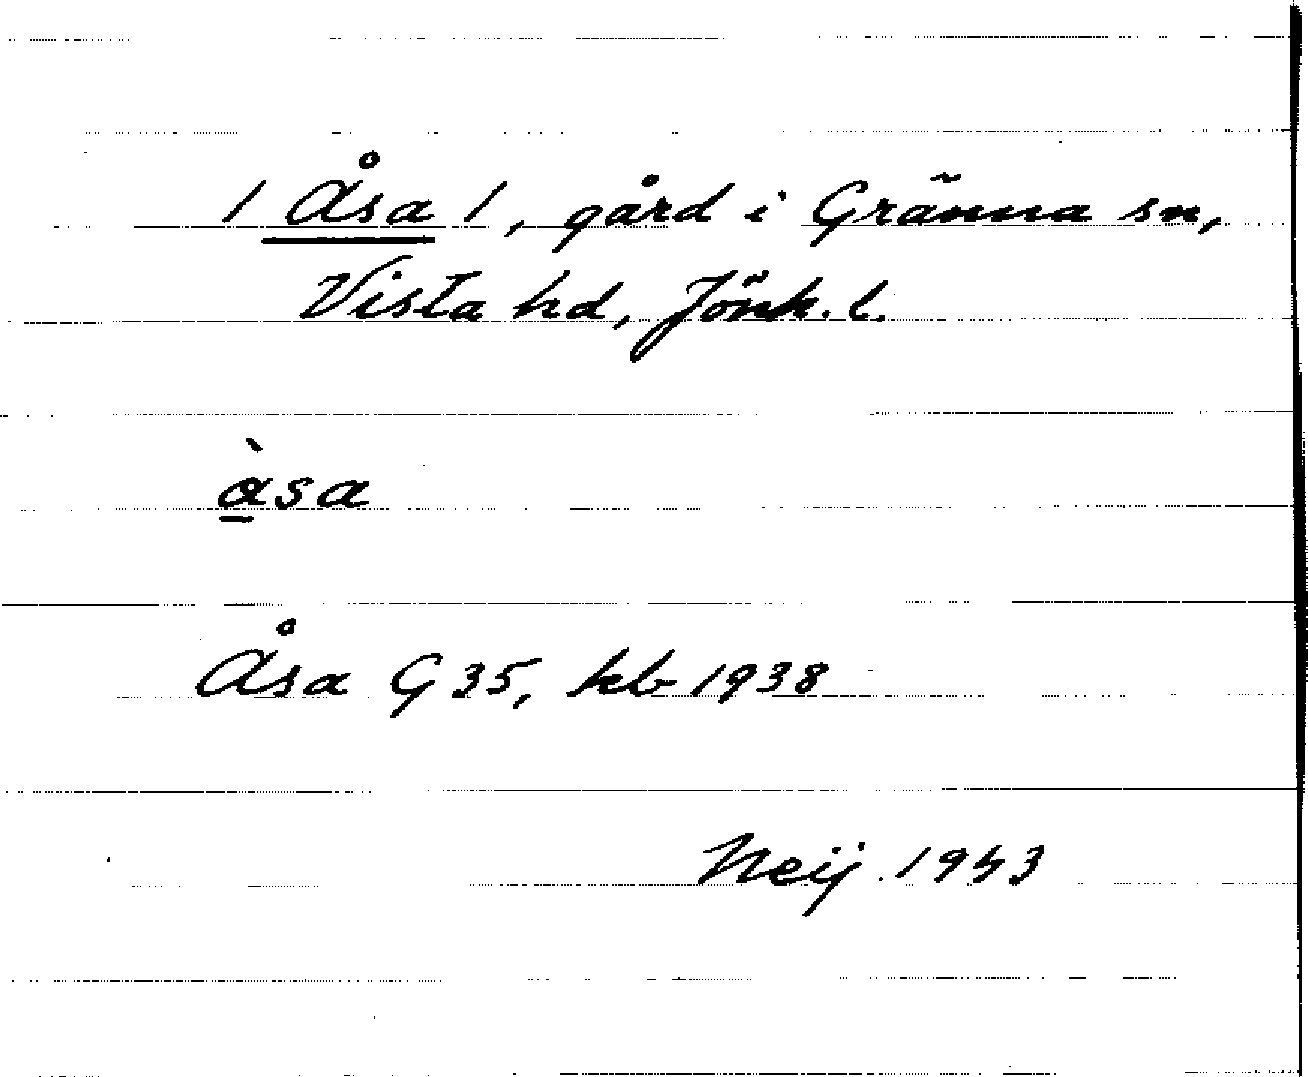 / Åsa /, gård i Gränna sn,
Vista hd, Jönk. l.
àsa
Åsa G 35, kb 1938
Neij. 1943